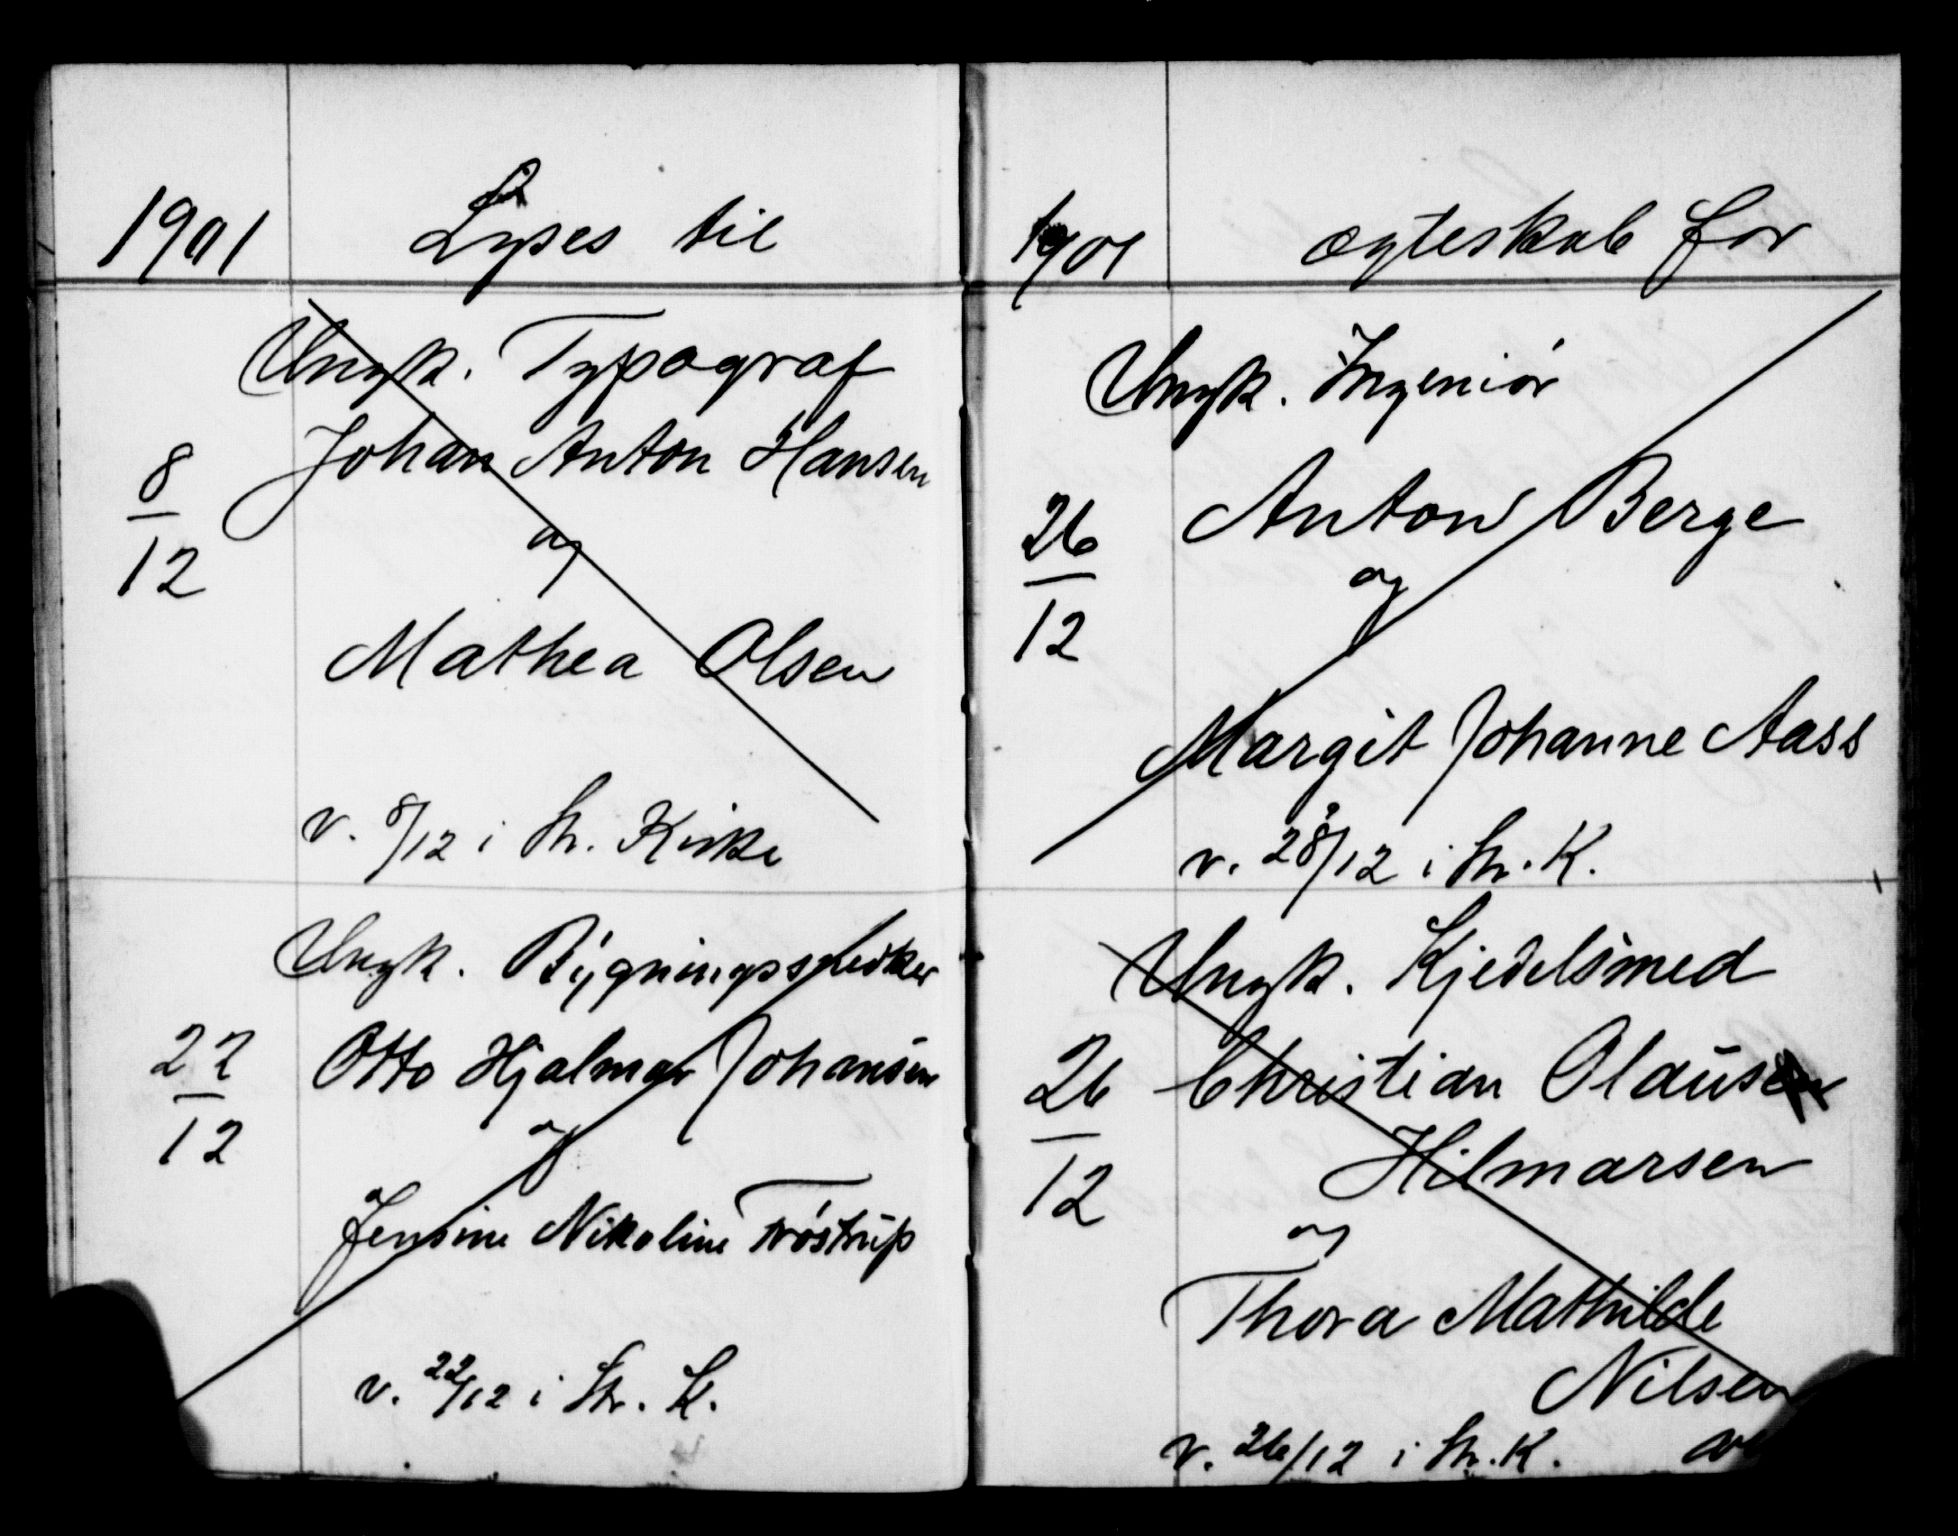 1901 Lyses til
Ungk. Typograf
Johan Anton Hansen
8
12
og
Mathea Olsen
v. 8/12 i Str. Kirke
Ungk. Bygningssnedker
22
12
Otto Hjalmar Johansen
og
Jensine Nikoline Tröstrup
v. 22/12 i Str. K.
1901 ægteskab for
Ungk. Ingeniör
26
12
Anton Berge
og
Margit Johanne Aass
v. 28/12 i Str. K.
Ungk. Kjedelsmed
26
12
Christian Olausen
Hilmarsen
og
Thora Mathilde
Nilsen
v. 26/12 i Str. K.